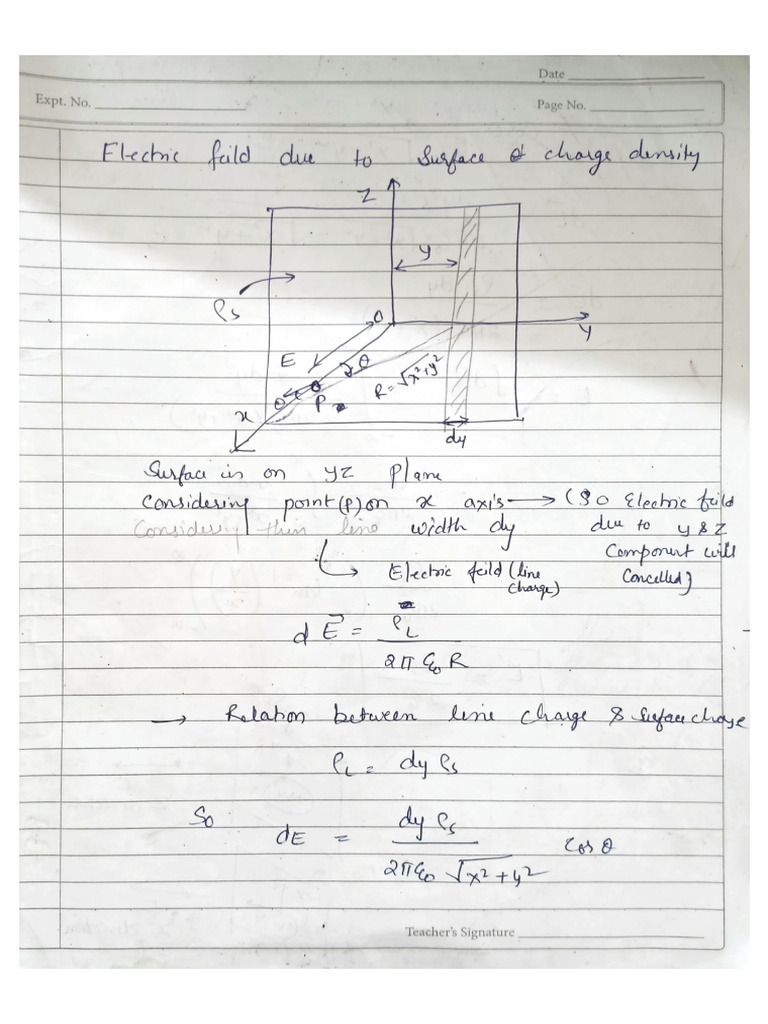 Date
Expt. No.
Page No.
Electric feild due to Surface charge density
Z
y
ρs
O
y
E
θ
R = √x²+y²
P
x
dy
Surface is on yz plane
Considering point (P) on x axis → (So Electric feild
Considering thin line width dy due to y & z
Component will
Cancelled}
Electric feild (line
charge)
dE⃗ = ρL / 2π ε₀ R
→ Relation between line charge & surface charge
ρL = dy ρs
So dE = dy ρs / 2π ε₀ √x² + y² Cos θ
Teacher's Signature